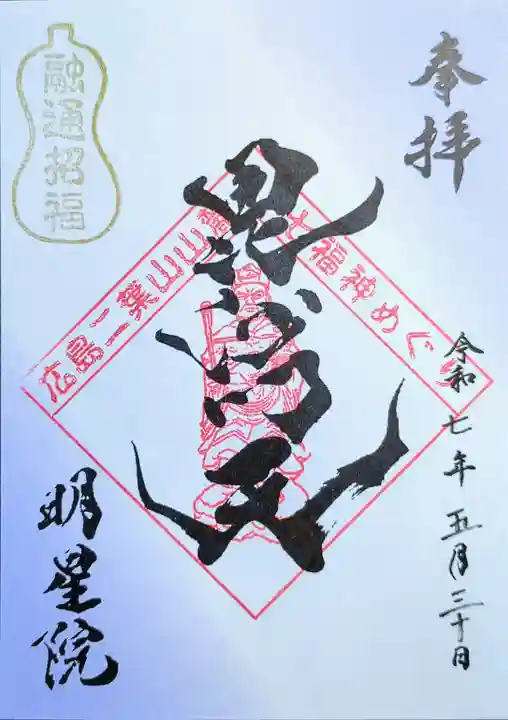 奉拝
融通招福
毘沙門天
広島二葉山山麓七福神めぐり
令和七年五月三十日
明星院